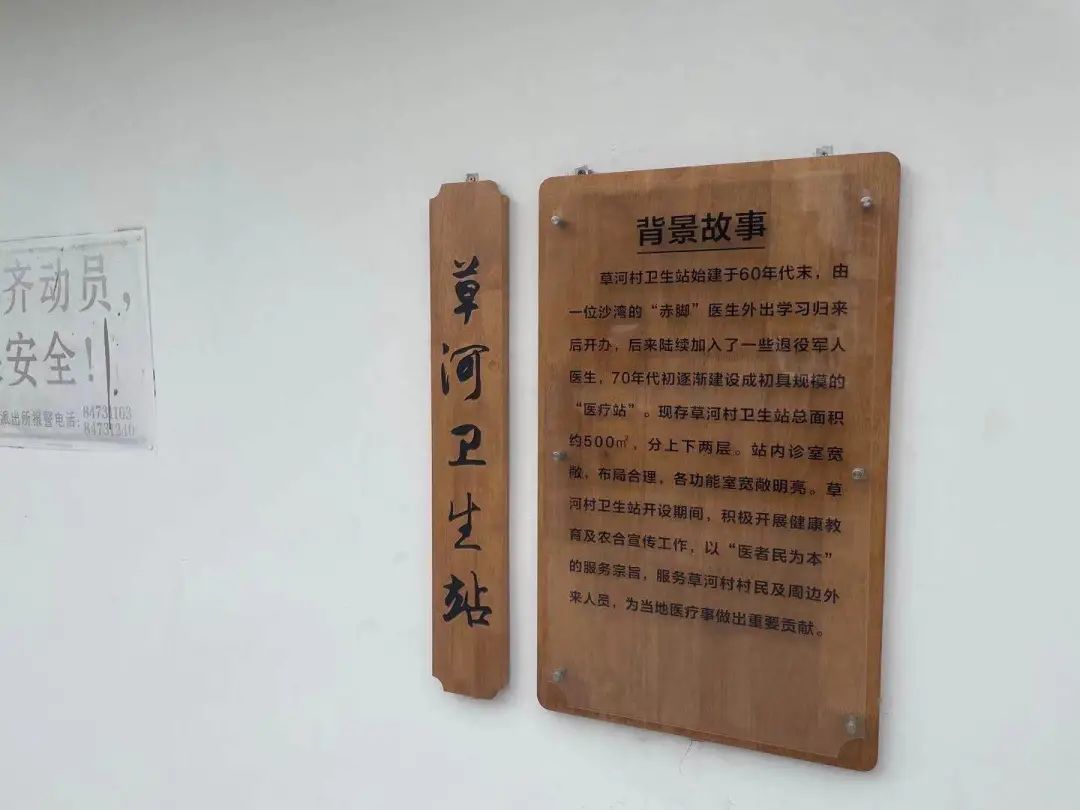 齐动员，
安全！
派出所报警电话：84731163
84731240
草河卫生站
背景故事
草河村卫生站始建于60年代末，由
一位沙湾的“赤脚”医生外出学习归来
后开办，后来陆续加入了一些退役军人
医生，70年代初逐渐建设成初具规模的
“医疗站”。现存草河村卫生站总面积
约500㎡，分上下两层。站内诊室宽
敞，布局合理，各功能室宽敞明亮。草
河村卫生站开设期间，积极开展健康教
育及农合宣传工作，以“医者民为本”
的服务宗旨，服务草河村村民及周边外
来人员，为当地医疗事做出重要贡献。